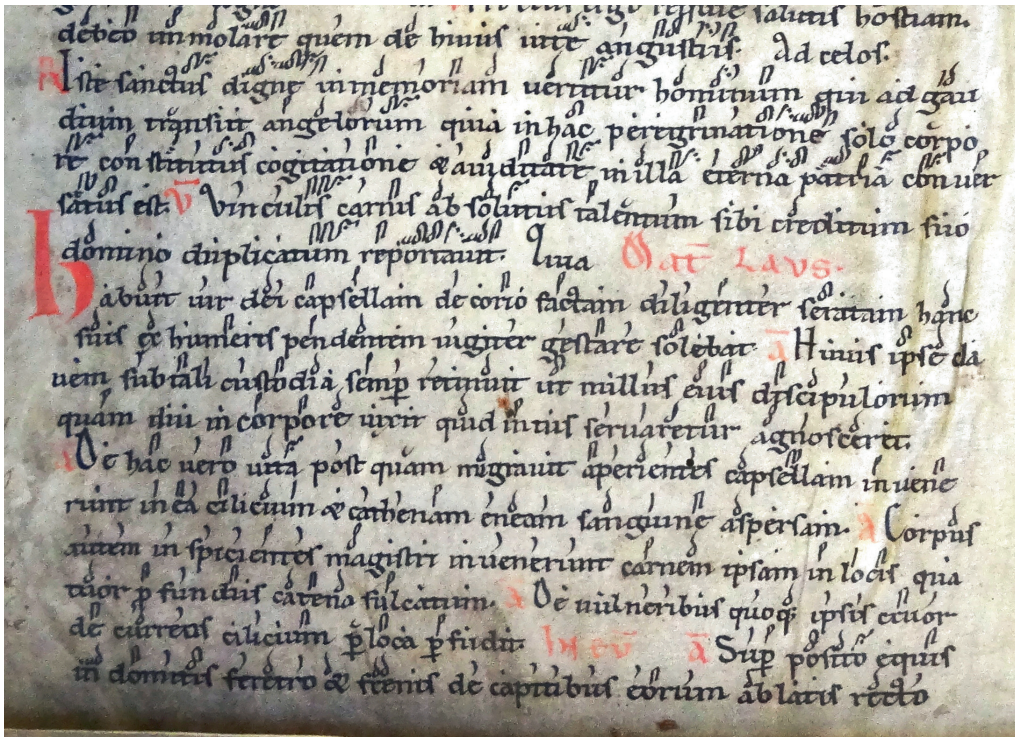 salutis hostiam.
debeo immolare quem de huius uite angustiis. Ad celos.
R Iste sanctus digne in memoriam uertitur hominum qui ad gau
dium transiit angelorum quia in hac peregrinatione solo corpo
re constitutus cogitatione & auiditate in illa eterna patria conuer
satus est. V̄ Vinculis carnis absolutus talentum sibi creditum suo
domino duplicatum reportauit. Iura Mat̄ Lavs.
habuit uir dei capsellam de corio factam diligenter seratam hanc
suis ex humeris pendentem iugiter gestare solebat ā Huius ipse cla
uem sub tali custodia semꝑ retinuit ut nullus eius discipulorum
quam diu in corpore uixit quid intus seruaretur agnosceret.
a De hac uero uita post quam migrauit aperientes capsellam inuene
runt in ea cilicium & cathenam eneam sanguine aspersam. a Corpus
autem inspicientes magistri inuenerunt carnem ipsam in locis qua
tuor ꝓfundius catena sulcatum. a De uulneribus quoqꝫ ipsis cruor
de currens cilicium ꝑ loca ꝑfudit In eu̅ ā Suꝑ posito equis
indomitis feretro & frenis de capitibus eorum ablatis recto